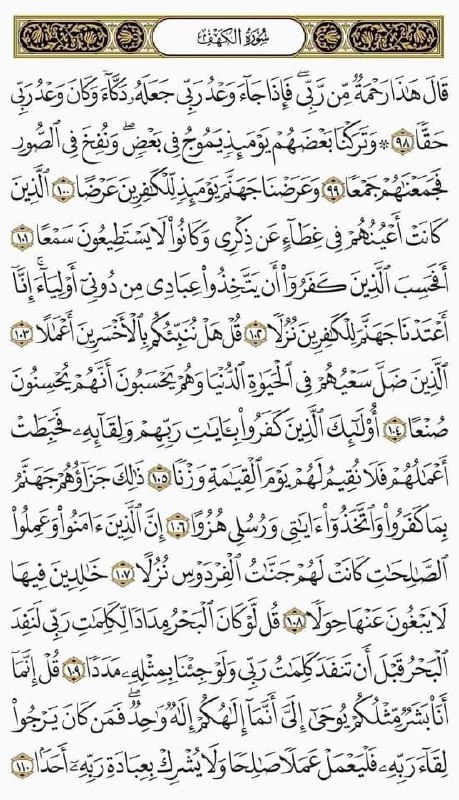 سُورَةُ الكَهْفِ
قَالَ هَٰذَا رَحْمَةٌ مِّن رَّبِّي ۖ فَإِذَا جَاءَ وَعْدُ رَبِّي جَعَلَهُ دَكَّاءَ ۖ وَكَانَ وَعْدُ رَبِّي
حَقًّا ٩٨ ۞ وَتَرَكْنَا بَعْضَهُمْ يَوْمَئِذٍ يَمُوجُ فِي بَعْضٍ ۖ وَنُفِخَ فِي الصُّورِ
فَجَمَعْنَٰهُمْ جَمْعًا ٩٩ وَعَرَضْنَا جَهَنَّمَ يَوْمَئِذٍ لِّلْكَٰفِرِينَ عَرْضًا ١٠٠ الَّذِينَ
كَانَتْ أَعْيُنُهُمْ فِي غِطَاءٍ عَن ذِكْرِي وَكَانُوا لَا يَسْتَطِيعُونَ سَمْعًا ١٠١
أَفَحَسِبَ الَّذِينَ كَفَرُوا أَن يَتَّخِذُوا عِبَادِي مِن دُونِي أَوْلِيَاءَ ۚ إِنَّا
أَعْتَدْنَا جَهَنَّمَ لِلْكَٰفِرِينَ نُزُلًا ١٠٢ قُلْ هَلْ نُنَبِّئُكُم بِالْأَخْسَرِينَ أَعْمَٰلًا ١٠٣
الَّذِينَ ضَلَّ سَعْيُهُمْ فِي الْحَيَوٰةِ الدُّنْيَا وَهُمْ يَحْسَبُونَ أَنَّهُمْ يُحْسِنُونَ
صُنْعًا ١٠٤ أُولَٰئِكَ الَّذِينَ كَفَرُوا بِـَٔايَٰتِ رَبِّهِمْ وَلِقَائِهِ فَحَبِطَتْ
أَعْمَٰلُهُمْ فَلَا نُقِيمُ لَهُمْ يَوْمَ الْقِيَٰمَةِ وَزْنًا ١٠٥ ذَٰلِكَ جَزَاؤُهُمْ جَهَنَّمُ
بِمَا كَفَرُوا وَاتَّخَذُوا ءَايَٰتِي وَرُسُلِي هُزُوًا ١٠٦ إِنَّ الَّذِينَ ءَامَنُوا وَعَمِلُوا
الصَّٰلِحَٰتِ كَانَتْ لَهُمْ جَنَّٰتُ الْفِرْدَوْسِ نُزُلًا ١٠٧ خَٰلِدِينَ فِيهَا
لَا يَبْغُونَ عَنْهَا حِوَلًا ١٠٨ قُل لَّوْ كَانَ الْبَحْرُ مِدَادًا لِّكَلِمَٰتِ رَبِّي لَنَفِدَ
الْبَحْرُ قَبْلَ أَن تَنفَدَ كَلِمَٰتُ رَبِّي وَلَوْ جِئْنَا بِمِثْلِهِ مَدَدًا ١٠٩ قُلْ إِنَّمَا
أَنَا بَشَرٌ مِّثْلُكُمْ يُوحَىٰ إِلَيَّ أَنَّمَا إِلَٰهُكُمْ إِلَٰهٌ وَٰحِدٌ ۖ فَمَن كَانَ يَرْجُوا
لِقَاءَ رَبِّهِ فَلْيَعْمَلْ عَمَلًا صَٰلِحًا وَلَا يُشْرِكْ بِعِبَادَةِ رَبِّهِ أَحَدًا ١١٠